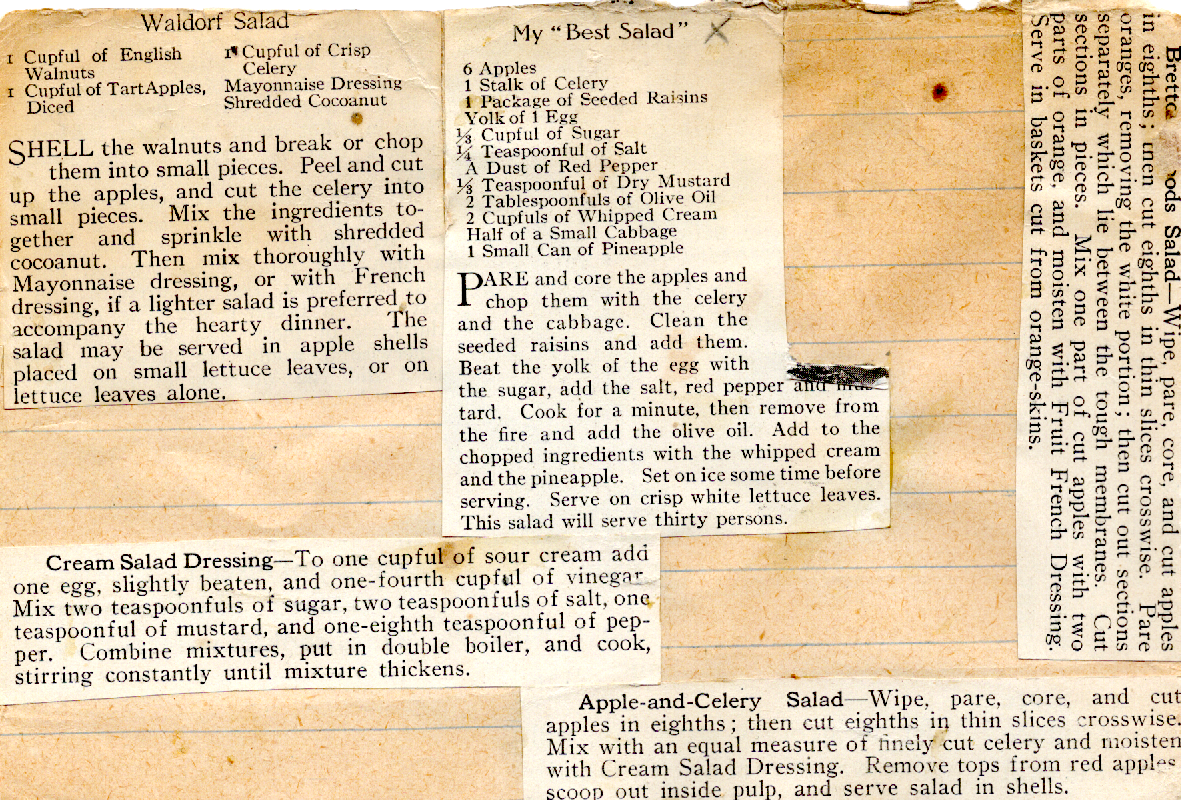 Waldorf Salad
1 Cupful of English
Walnuts
1 Cupful of Tart Apples,
Diced
1 Cupful of Crisp
Celery
Mayonnaise Dressing
Shredded Cocoanut
SHELL the walnuts and break or chop
them into small pieces. Peel and cut
up the apples, and cut the celery into
small pieces. Mix the ingredients to-
gether and sprinkle with shredded
cocoanut. Then mix thoroughly with
Mayonnaise dressing, or with French
dressing, if a lighter salad is preferred to
accompany the hearty dinner. The
salad may be served in apple shells
placed on small lettuce leaves, or on
lettuce leaves alone.
My "Best Salad" X
6 Apples
1 Stalk of Celery
1 Package of Seeded Raisins
Yolk of 1 Egg
⅓ Cupful of Sugar
¼ Teaspoonful of Salt
A Dust of Red Pepper
⅓ Teaspoonful of Dry Mustard
2 Tablespoonfuls of Olive Oil
2 Cupfuls of Whipped Cream
Half of a Small Cabbage
1 Small Can of Pineapple
PARE and core the apples and
chop them with the celery
and the cabbage. Clean the
seeded raisins and add them.
Beat the yolk of the egg with
the sugar, add the salt, red pepper and mus-
tard. Cook for a minute, then remove from
the fire and add the olive oil. Add to the
chopped ingredients with the whipped cream
and the pineapple. Set on ice some time before
serving. Serve on crisp white lettuce leaves.
This salad will serve thirty persons.
Salad—Wipe, pare, core, and cut apples
in eighths; then cut eighths in thin slices crosswise. Pare
oranges, removing the white portion; then cut out sections
separately which lie between the tough membranes. Cut
sections in pieces. Mix one part of cut apples with two
parts of orange, and moisten with Fruit French Dressing.
Serve in baskets cut from orange-skins.
Cream Salad Dressing—To one cupful of sour cream add
one egg, slightly beaten, and one-fourth cupful of vinegar
Mix two teaspoonfuls of sugar, two teaspoonfuls of salt, one
teaspoonful of mustard, and one-eighth teaspoonful of pep-
per. Combine mixtures, put in double boiler, and cook,
stirring constantly until mixture thickens.
Apple-and-Celery Salad—Wipe, pare, core, and cut
apples in eighths; then cut eighths in thin slices crosswise.
Mix with an equal measure of finely cut celery and moisten
with Cream Salad Dressing. Remove tops from red apples
scoop out inside pulp, and serve salad in shells.